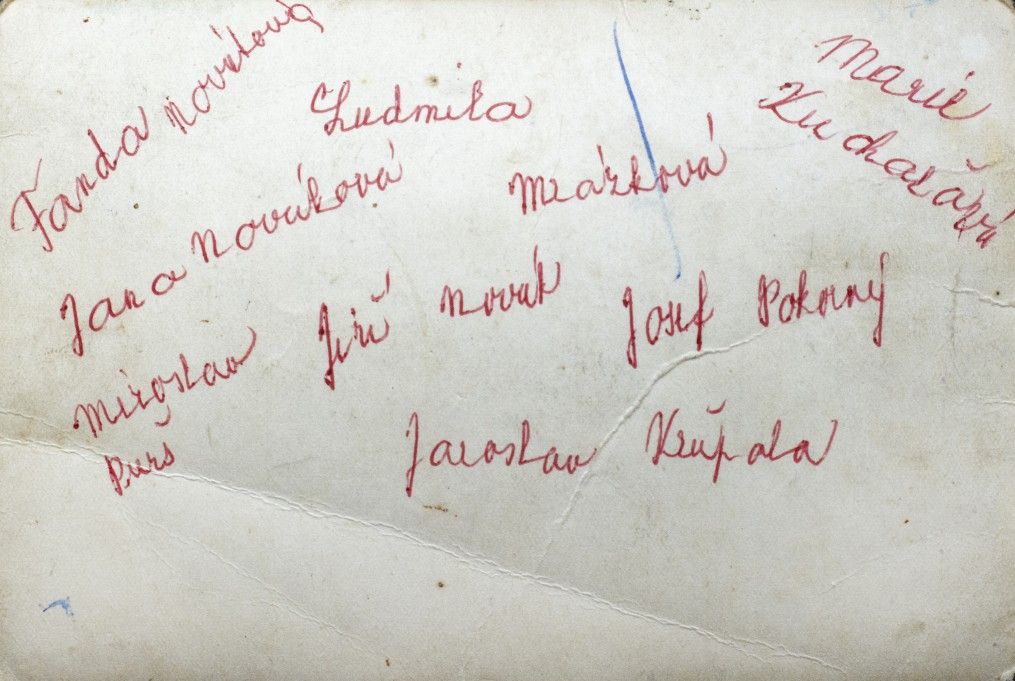 Fanda Nováková
Ludmila
Mrázková
Marie
Kuchařová
Jana Nováková
Jiří Novák
Josef Pokorný
Miroslav
Purš
Jaroslav Křupala